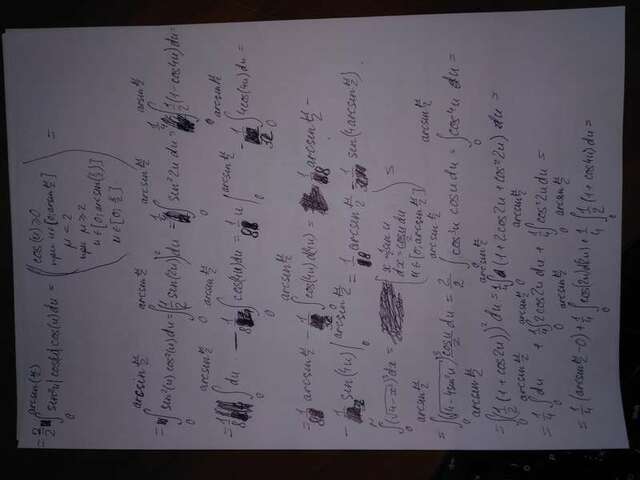 = \frac{2}{2} \int_0^{arcsin(\frac{μ}{2})} sin^2u |cosu| cos(u) du = ( cos(u) ≥ 0
при u ∈ [0; arcsin \frac{μ}{2}]
μ = 2
при μ ≥ 2
u ∈ [0; arcsin(\frac{2}{2})]
u ∈ [0; \frac{π}{2}] ) =
= \int_0^{arcsin \frac{μ}{2}} sin^2(u) cos^2(u) du = \int_0^{arcsin \frac{μ}{2}} (\frac{1}{2} sin(2u))^2 du = \frac{1}{4} \int_0^{arcsin \frac{μ}{2}} sin^2 2u du = \frac{1}{4} \int_0^{arcsin \frac{μ}{2}} \frac{1}{2} (1 - cos4u) du =
= \frac{1}{8} \int_0^{arcsin \frac{μ}{2}} du - \frac{1}{8} \int_0^{arcsin \frac{μ}{2}} cos(4u) du = \frac{1}{8} u |_0^{arcsin \frac{μ}{2}} - \frac{1}{32} \int_0^{arcsin \frac{μ}{2}} 4cos(4u) du =
= \frac{1}{8} arcsin \frac{μ}{2} - \frac{1}{32} \int_0^{arcsin \frac{μ}{2}} cos(4u) d(4u) = \frac{1}{8} arcsin \frac{μ}{2} -
- \frac{1}{32} sin(4u) |_0^{arcsin \frac{μ}{2}} = \frac{1}{8} arcsin \frac{μ}{2} - \frac{1}{32} sin(4 arcsin \frac{μ}{2}).
dx = ( x = sin u
dx = cos u du
u ∈ [0; arcsin \frac{μ}{2}] ) =
cos^3 u cos u du = \int_0^{arcsin \frac{μ}{2}} cos^4 u du =
= \int_0^{arcsin \frac{μ}{2}} (\frac{1}{2} (1 + cos2u))^2 du = \frac{1}{4} \int_0^{arcsin \frac{μ}{2}} (1 + 2cos2u + cos^2 2u) du =
= \frac{1}{4} \int_0^{arcsin \frac{μ}{2}} du + \frac{1}{4} \int_0^{arcsin \frac{μ}{2}} 2cos2u du + \frac{1}{4} \int_0^{arcsin \frac{μ}{2}} cos^2 2u du =
= \frac{1}{4} (arcsin \frac{μ}{2} - 0) + \frac{1}{4} \int_0^{arcsin \frac{μ}{2}} cos(2u) d(2u) + \frac{1}{4} \int_0^{arcsin \frac{μ}{2}} \frac{1}{2} (1 + cos4u) du =